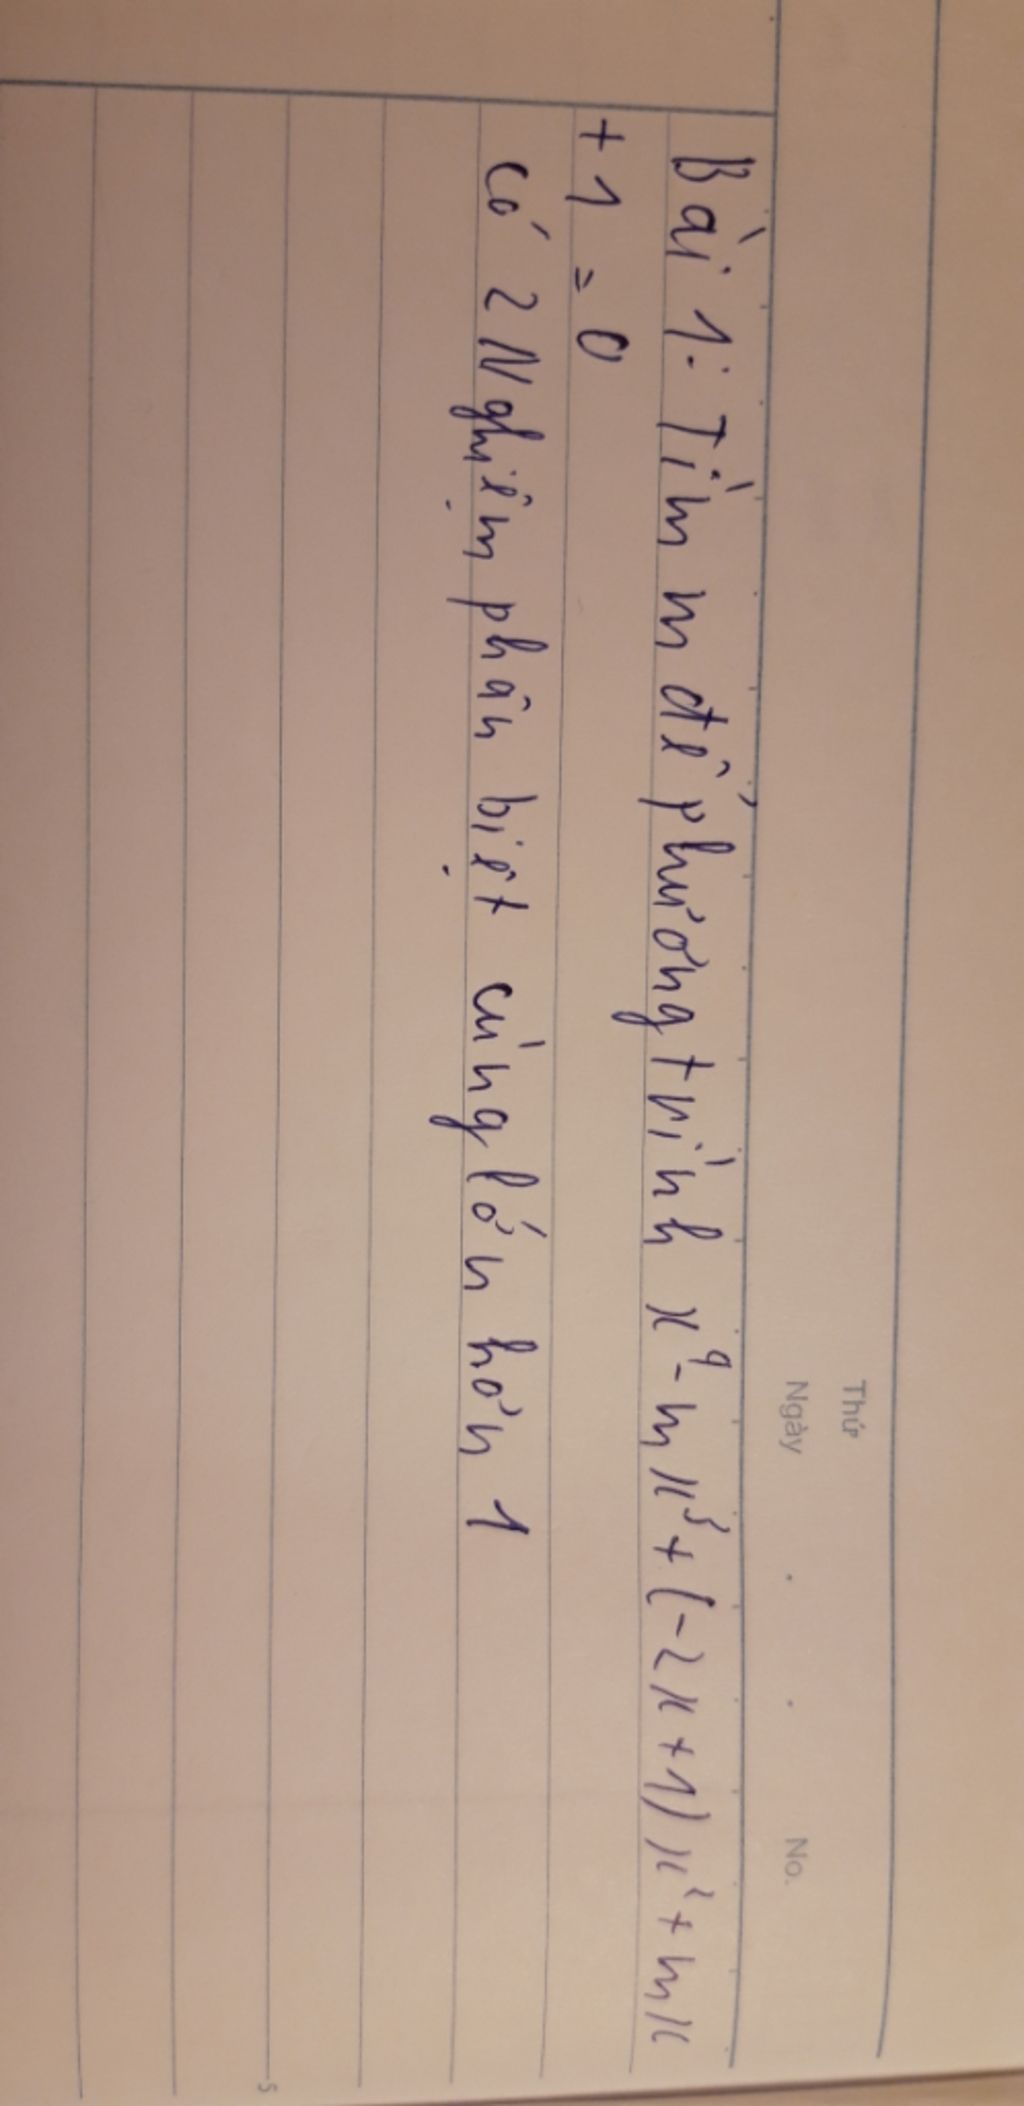 Thứ
Ngày No.
Bài 1: Tìm m để phương trình x⁴ - mx³ + (-2x+1)x² + mx
+ 1 = 0
có 2 Nghiệm phân biệt cùng lớn hơn 1
5